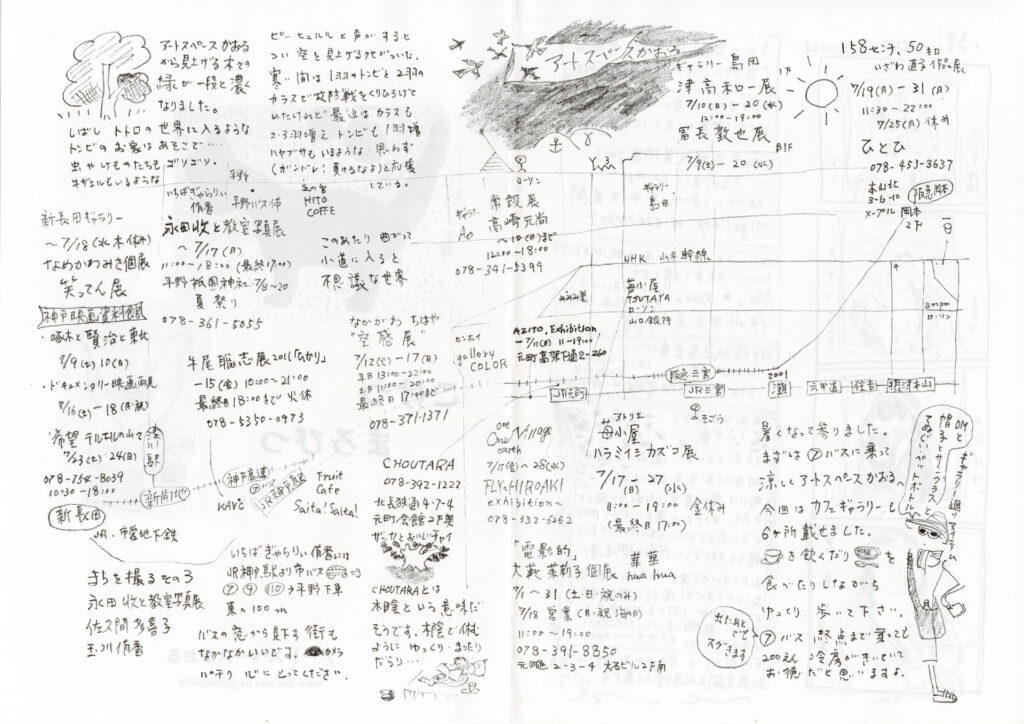 アートスペースかおる
から見上げる木々の
緑が一段と濃く
なりました。
しばし トトロの世界に入るような
トンビのお家はあそこで…
虫やけものたちもゴソゴソ。
キザエルもいるような
ピーヒュルルと声がすると
つい空を見上げるクセがついた。
寒い間は1羽のトンビと2羽の
カラスで攻防戦をくりひろげて
めたけれど最近はカラスも
2・3羽増え トンビも1羽増
ハヤブサもいるような 思わず
(ガンバレ! 負けるなよ)と応援
している。
アートスペースかおる
ギャラリー島田
1F
津高和一展
7/10(日)−20(水)
12:00−19:00
冨長敦也展
B1F
7/9(土)−20(水)
158センチ、50キロ
いざわ直子作品展
7/19(月)−31(日)
11:30〜22:00
7/25(月)休み
ひとひ
078-453-3637
本山北
3-6-10
メープル岡本
2F
阪急岡本
平野
いちばぎゃらりぃ
侑香
平野バス停
HITO
COFFE
新長田ギャラリー
〜7/18(水木休み)
なめかわみき個展
笑ってん展
永田收と教室写真展
〜7/17(日)
11:00〜18:00(最終17:00)
平野祇園神社 7/13〜20
夏祭り
078-361-5055
このあたり曲がって
小道に入ると
不思議な世界
ギャラリー
Ao
ローソン
常設展
高崎元尚
〜10(日)まで
12:00−18:00
078-341-5399
ギャラリー
島田
NHK 山手幹線
苺小屋
TSUTAYA
ローソン
山口銀行
ampm
ローソン
神戸映画資料館
・啄木と賢治と東北
7/9(土)10(日)
・ドキュメンタリー映画両見
7/16(土)−18(月・祝)
・希望 テルエルの山々
7/23(土)・24(日)
078-754-8039
10:30−18:00
牛尾聡志展2011「ひかり」
−15(金) 10:00〜21:00
最終日18:00まで 火休
078-5350-0973
なかがわ ちはや
"空感展"
7/12(火)−17(日)
平日13:00−22:00
土日11:00−20:00
最終日17:00まで
078-371-1371
センカイ
gallery
COLOR
AZITO, Exhibition
−7/11(月) 11−19:00
元町高架下通2-260
阪急三宮
JR元町
JR三宮
そごう
2001
灘
六甲道
住吉
摂津本山
湊川駅
新開地
新長田
JR・市営地下鉄
神戸高速
⑦
JR神戸駅
KAVC
Fruit
Cafe
Saita! Saita!
CHOUTARA
078-392-1222
北長狭通4-7-4
元町会館2F奥
ザッカとおいしいチャイ
CHOUTARAとは
木陰という意味だ
そうです。木陰で休む
ようにゆっくりまったり
だらり…
one
One Village
earth
7/15(金)〜28(水)
FLY-HIROAKI
exhibition〜
078-332-6262
アトリエ
苺小屋
ハラミイミカズコ展
7/17−27
(日) (水)
11:00−19:00 金休み
(最終日17:00)
「電影的」
大藪茉莉子個展
華華
hua hua
7/1〜31(土・日・祝のみ)
7/18 営業(月・祝 海の日)
11:00〜19:00
078-391-8850
元町通2-3-4 大喜ビル2F南
暑くなって参りました。
まずは⑦バスに乗って
涼しくアートスペースかおるへ
今回はカフェギャラリーも
6ヶ所載せました。
を飲んだり を
食べたりしながら
ゆっくり歩いて下さい。
⑦バス 終点まで乗っても
200えん 冷房がきいていて
お徳だと思いますよ。
ギャラリー廻りアイテム
DMと
帽子とサングラスと
てぬぐいペットボトル
まちを撮る その3
永田收と教室写真展
佐久間多喜子
玉川侑香
いちばぎゃらりぃ侑香には
JR神戸駅より市バス
⑦ ⑨ ⑩ → 平野下車
東へ100m
バスの窓から見下す街も
なかなかいいですよ。 カメラ
バチリ心にとってください。